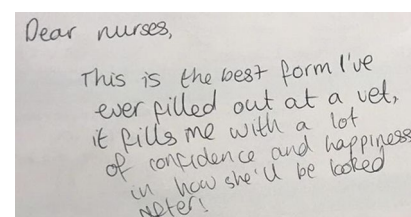 Dear nurses,
This is the best form I've
ever filled out at a vet,
it fills me with a lot
of confidence and happiness
in how she'll be looked
after!